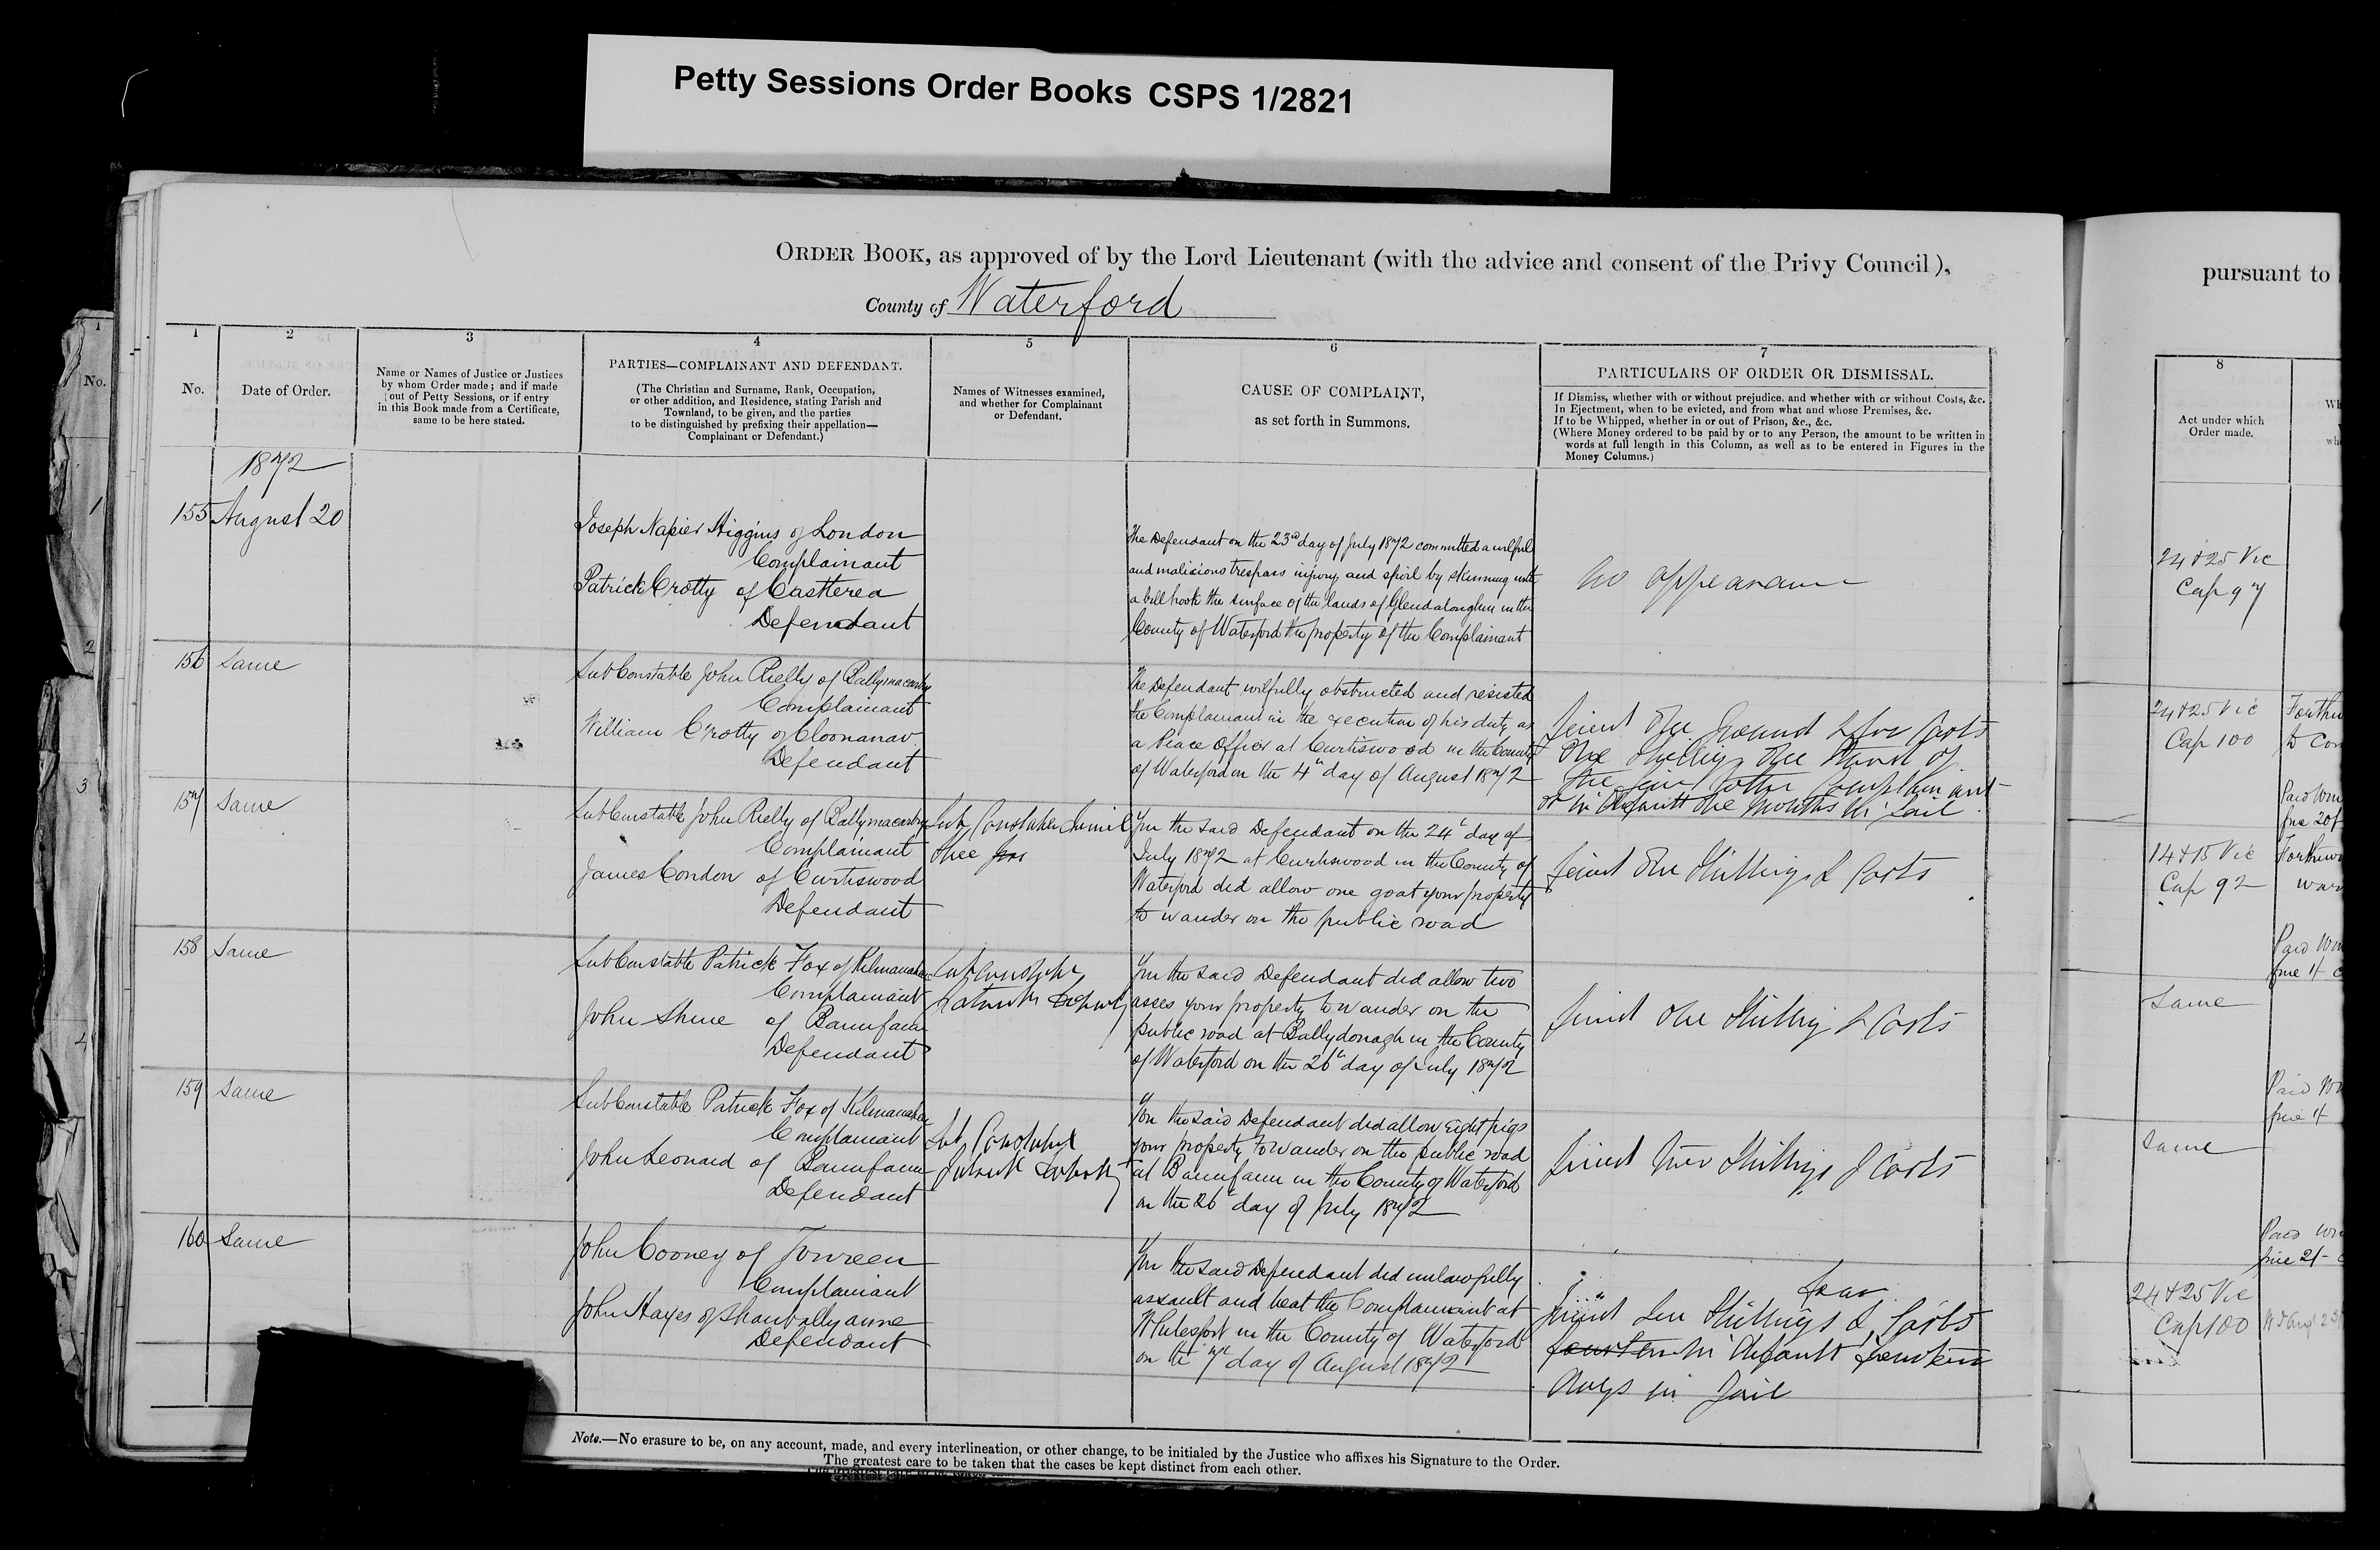 Petty Sessions Order Books CSPS 1/2821
ORDER BOOK, as approved of by the Lord Lieutenant (with the advice and consent of the Privy Council),
pursuant to
County of Waterford
1
2
3
4
5
6
7
8
No.
No.
Date of Order.
Name or Names of Justice or Justices
by whom Order made; and if made
out of Petty Sessions, or if entry
in this Book made from a Certificate,
same to be here stated.
PARTIES—COMPLAINANT AND DEFENDANT.
(The Christian and Surname, Rank, Occupation,
or other addition, and Residence, stating Parish and
Townland, to be given, and the parties
to be distinguished by prefixing their appellation—
Complainant or Defendant.)
Names of Witnesses examined,
and whether for Complainant
or Defendant.
CAUSE OF COMPLAINT,
as set forth in Summons.
PARTICULARS OF ORDER OR DISMISSAL.
If Dismiss, whether with or without prejudice, and whether with or without Costs, &c.
In Ejectment, when to be evicted, and from what and whose Premises, &c.
If to be Whipped, whether in or out of Prison, &c., &c.
(Where Money ordered to be paid by or to any Person, the amount to be written in
words at full length in this Column, as well as to be entered in Figures in the
Money Columns.)
Act under which
Order made.
1872
155 August 20
Joseph Napier Higgins of London
Complainant
Patrick Crotty of Castterea
Defendant
The Defendant on the 23rd day of July 1872 committed a wilful
and malicious trespass injury and spoil by skinning with
a bill hook the surface of the lands of Glendaloughin in the
County of Waterford the property of the Complainant
No appearance
24 & 25 Vic
Cap 97
156 Same
Sub Constable John Rielly of Ballymacarbry
Complainant
William Crotty of Cloonanav
Defendant
The Defendant wilfully obstructed and resisted
the Complainant in the execution of his duty as
a Peace Officer at Curtiswood in the County
of Waterford on the 4th day of August 1872
fined One Pound & five Costs
One Shilling One third of
the fine to the Complainant
or in default One Months in Jail
24 & 25 Vic
Cap 100
157 Same
Sub Constable John Rielly of Ballymacarbry
Complainant
James Condon of Curtiswood
Defendant
Sub Constable
You the said Defendant on the 24th day of
July 1872 at Curtiswood in the County of
Waterford did allow one goat your property
to wander on the public road
fined One Shilling & Costs
14 & 15 Vic
Cap 92
158 Same
Sub Constable Patrick Fox of Kilmanahan
Complainant
John Shine of Bannfane
Defendant
Sub Constable
You the said Defendant did allow two
asses your property to wander on the
public road at Ballydonagh in the County
of Waterford on the 26th day of July 1872
fined One Shilling & Costs
Same
159 Same
Sub Constable Patrick Fox of Kilmanahan
Complainant
John Leonard of Bannfane
Defendant
Sub Constable
You the said Defendant did allow eight pigs
your property to wander on the public road
at Bannfane in the County of Waterford
on the 26th day of July 1872
fined two Shillings & Costs
Same
160 Same
John Cooney of Tooreen
Complainant
John Hayes of Shanballyanne
Defendant
You the said Defendant did unlawfully
assault and beat the Complainant at
Whitesfort in the County of Waterford
on the 7th day of August 1872
fined Ten Shillings & Costs
fourteen in default fourteen
days in Jail
24 & 25 Vic
Cap 100
Note.—No erasure to be, on any account, made, and every interlineation, or other change, to be initialed by the Justice who affixes his Signature to the Order.
The greatest care to be taken that the cases be kept distinct from each other.